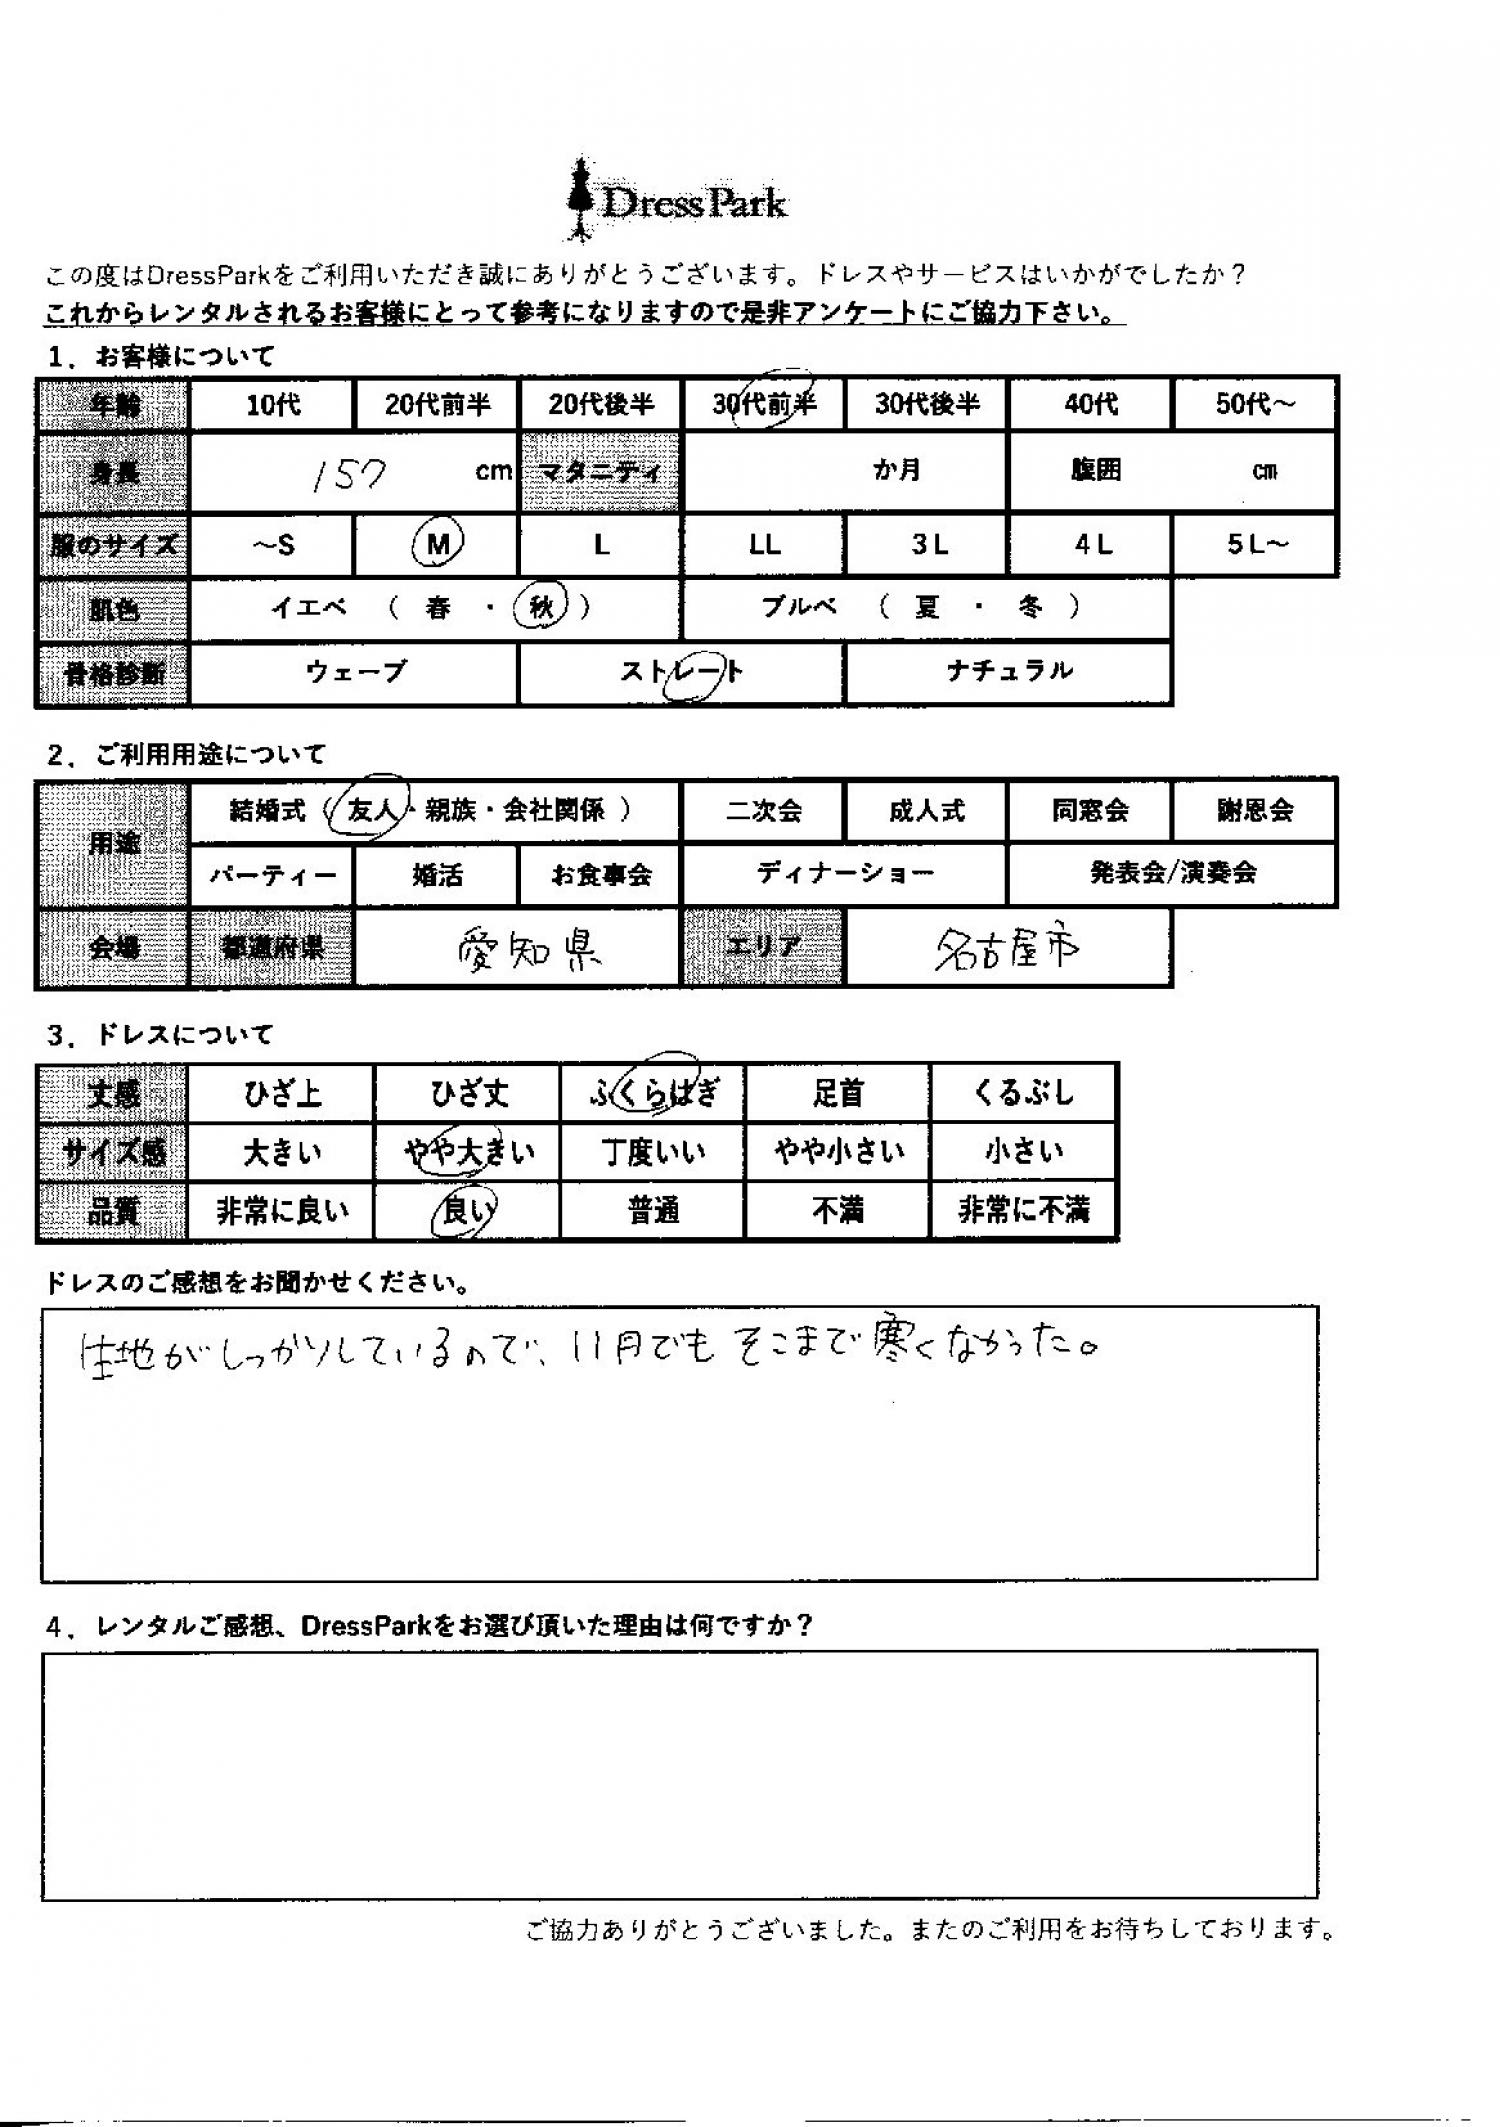 DressPark
この度はDressParkをご利用いただき誠にありがとうございます。ドレスやサービスはいかがでしたか？
これからレンタルされるお客様にとって参考になりますので是非アンケートにご協力下さい。
1．お客様について
年齢 10代 20代前半 20代後半 30代前半 30代後半 40代 50代～
身長 157 cm マタニティ か月 腹囲 cm
服のサイズ ～S M L LL 3L 4L 5L～
肌色 イエベ （ 春 ・ 秋 ） ブルベ （ 夏 ・ 冬 ）
骨格診断 ウェーブ ストレート ナチュラル
2．ご利用用途について
用途 結婚式（ 友人・親族・会社関係 ） 二次会 成人式 同窓会 謝恩会
パーティー 婚活 お食事会 ディナーショー 発表会/演奏会
会場 都道府県 愛知県 エリア 名古屋市
3．ドレスについて
丈感 ひざ上 ひざ丈 ふくらはぎ 足首 くるぶし
サイズ感 大きい やや大きい 丁度いい やや小さい 小さい
品質 非常に良い 良い 普通 不満 非常に不満
ドレスのご感想をお聞かせください。
生地がしっかりしているので、11月でもそこまで寒くなかった。
4．レンタルご感想、DressParkをお選び頂いた理由は何ですか？
ご協力ありがとうございました。またのご利用をお待ちしております。